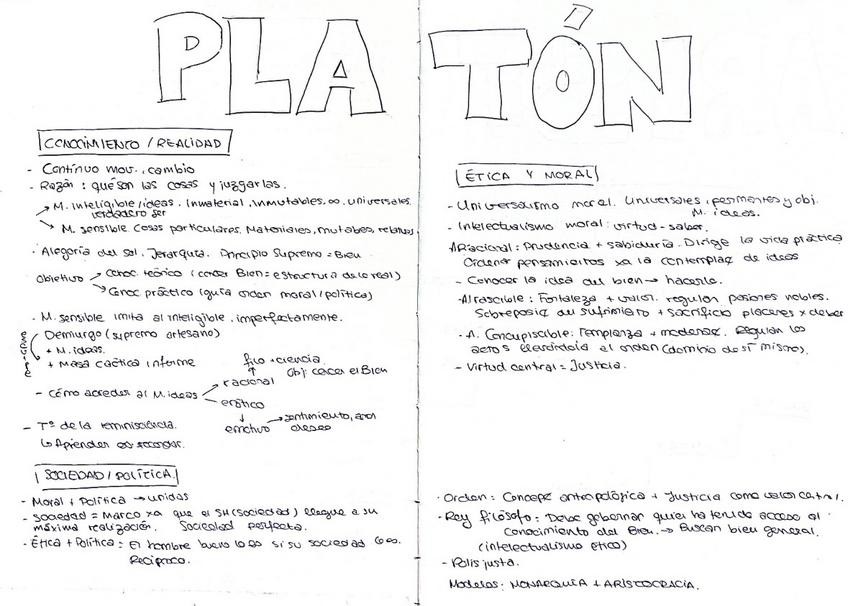 PLATÓN
CONOCIMIENTO / REALIDAD
- Contínuo mov., cambio
- Razón: qué son las cosas y juzgarlas.
M. inteligible/ideas. Inmaterial, inmutables, ∞, universales
verdadero ser
M. sensible cosas particulares. Materiales, mutables, relativas
- Alegoría del sol. Jerarquía. Principio Supremo = Bien
Objetivo
Conoc. teórico (conoc Bien = estructura de lo real)
Conoc práctico (guía orden moral/política)
- M. sensible imita al inteligible, imperfectamente.
Demiurgo (supremo artesano)
+ M. ideas
+ Masa caótica informe
- Cómo acceder al M. ideas
filo + ciencia
racional
Obj: conocer el Bien
erótico
emotivo → sentimiento, amor
deseo
- Tª de la reminiscencia.
↳ Aprender es recordar.
SOCIEDAD / POLÍTICA
- Moral + Política → unidas
- Sociedad = Marco xa que el SH (sociedad) llegue a su
máxima realización. Sociedad perfecta.
- Ética + Política: El hombre bueno lo es si su sociedad lo es.
Recíproco.
ÉTICA Y MORAL
- Universalismo moral. Universales, permanentes y obj.
M. ideas.
- Intelectualismo moral: virtud - saber.
A. Racional: Prudencia + sabiduría. Dirige la vida práctica
Ordenar pensamientos xa la contemplaç de ideas
- Conocer la idea del bien → hacerlo.
- A. Irascible: Fortaleza + valor. regulan pasiones nobles.
Sobreposic del sufrimiento + sacrificio placeres x deber
- A. Concupiscible: Templanza + moderac. Regulan los
actos llevándola al orden (dominio de sí mismo).
- Virtud central = Justicia.
- Orden: Concepc antropológica + Justicia como valor central.
- Rey filósofo: Debe gobernar quien ha tenido acceso al
Conocimiento del Bien. → Buscan bien general.
(intelectualismo ético)
- Polis justa.
Modelos: MONARQUÍA + ARISTOCRACIA.